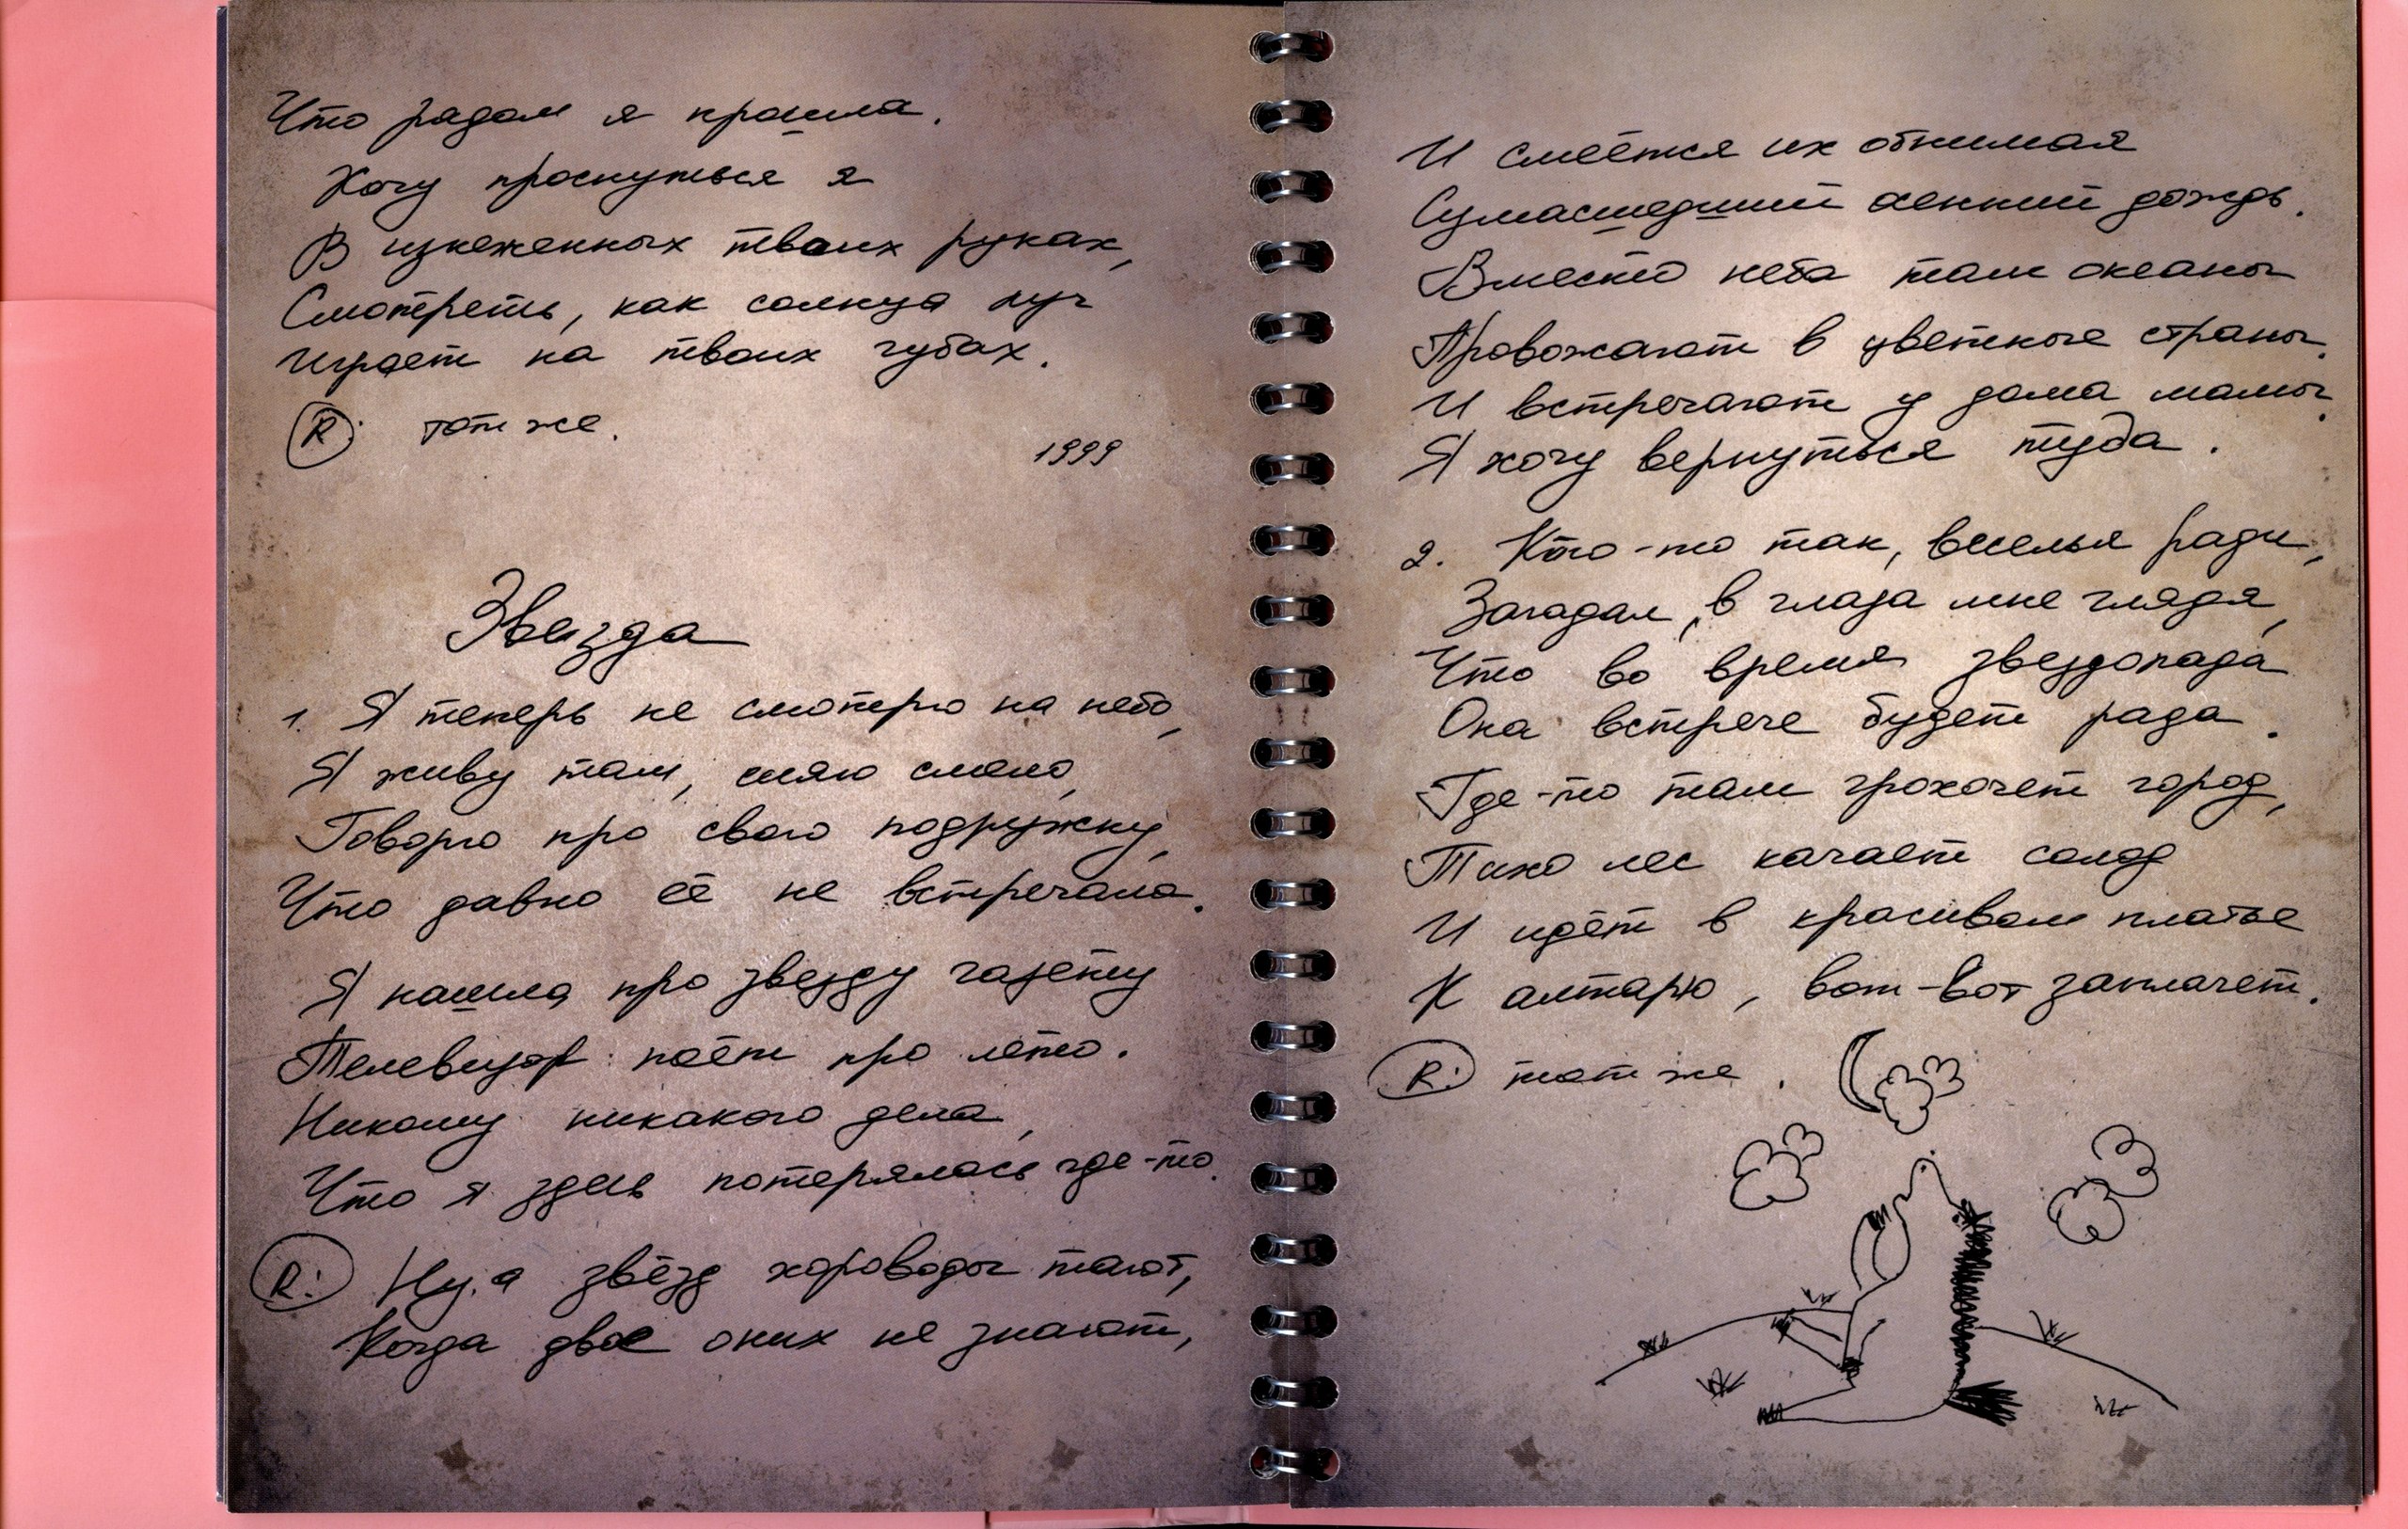 Что рядом я прошла.
Хочу проснуться я
В изнеженных твоих руках,
Смотреть, как солнца луч
Играет на твоих губах.
R: тот же.
1999
Звезда
1. Я теперь не смотрю на небо,
Я живу там, сияю смело,
Говорю про свою подружку,
Что давно её не встречала.
Я нашла про звезду газету
Телевизор поёт про лето.
Никому никакого дела,
Что я здесь потерялась где-то.
R: Ну, а звёзд хороводы тают,
Когда двое о них не знают,
И смеётся их обнимая
Сумасшедший осенний дождь.
Вместо неба там океаны
Провожают в цветные страны.
И встречают у дома мамы.
Я хочу вернуться туда.
2. Кто-то так, веселья ради,
Загадал, в глаза мне глядя,
Что во время звездопада
Она встрече будет рада.
Где-то там грохочет город,
Тихо лес качает солод
И идёт в красивом платье
К алтарю, вот-вот заплачет.
R: тот же.